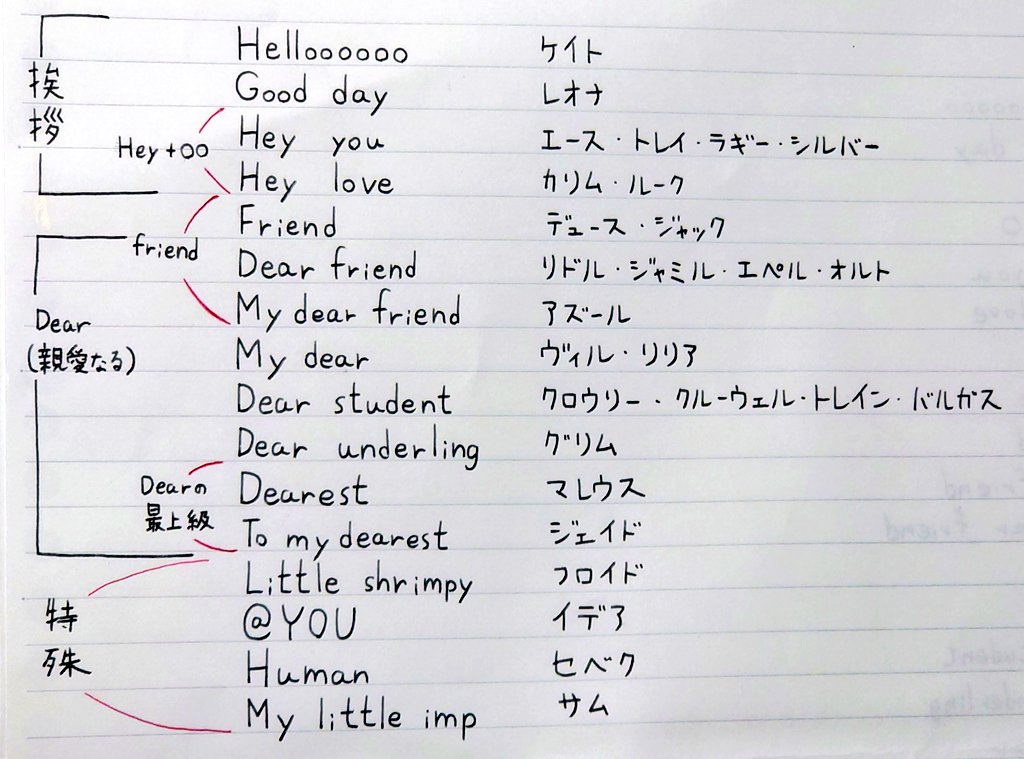 挨拶
Helloooooo ケイト
Good day レオナ
Hey +○○
Hey you エース・トレイ・ラギー・シルバー
Hey love カリム・ルーク
friend
Friend デュース・ジャック
Dear friend リドル・ジャミル・エペル・オルト
My dear friend アズール
Dear
(親愛なる)
My dear ヴィル・リリア
Dear student クロウリー・クルーウェル・トレイン・バルガス
Dear underling グリム
Dearの
最上級
Dearest マレウス
To my dearest ジェイド
特殊
Little shrimpy フロイド
@YOU イデア
Human セベク
My little imp サム